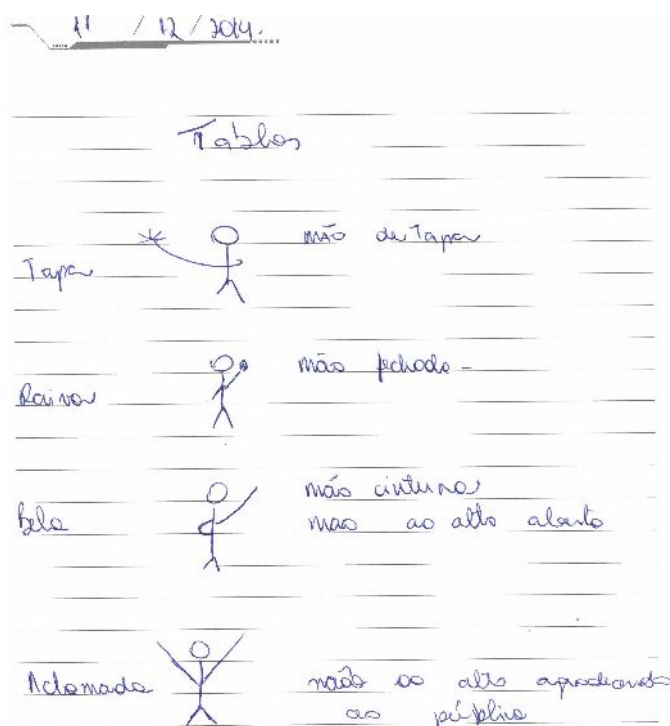 11 / 12 / 2014.
Tablos
Tapa mão de Tapa
Raiva mão fechada -
Bela mão cintura
mao ao alto aberta
Aclamada mão ao alto agradecendo
ao público